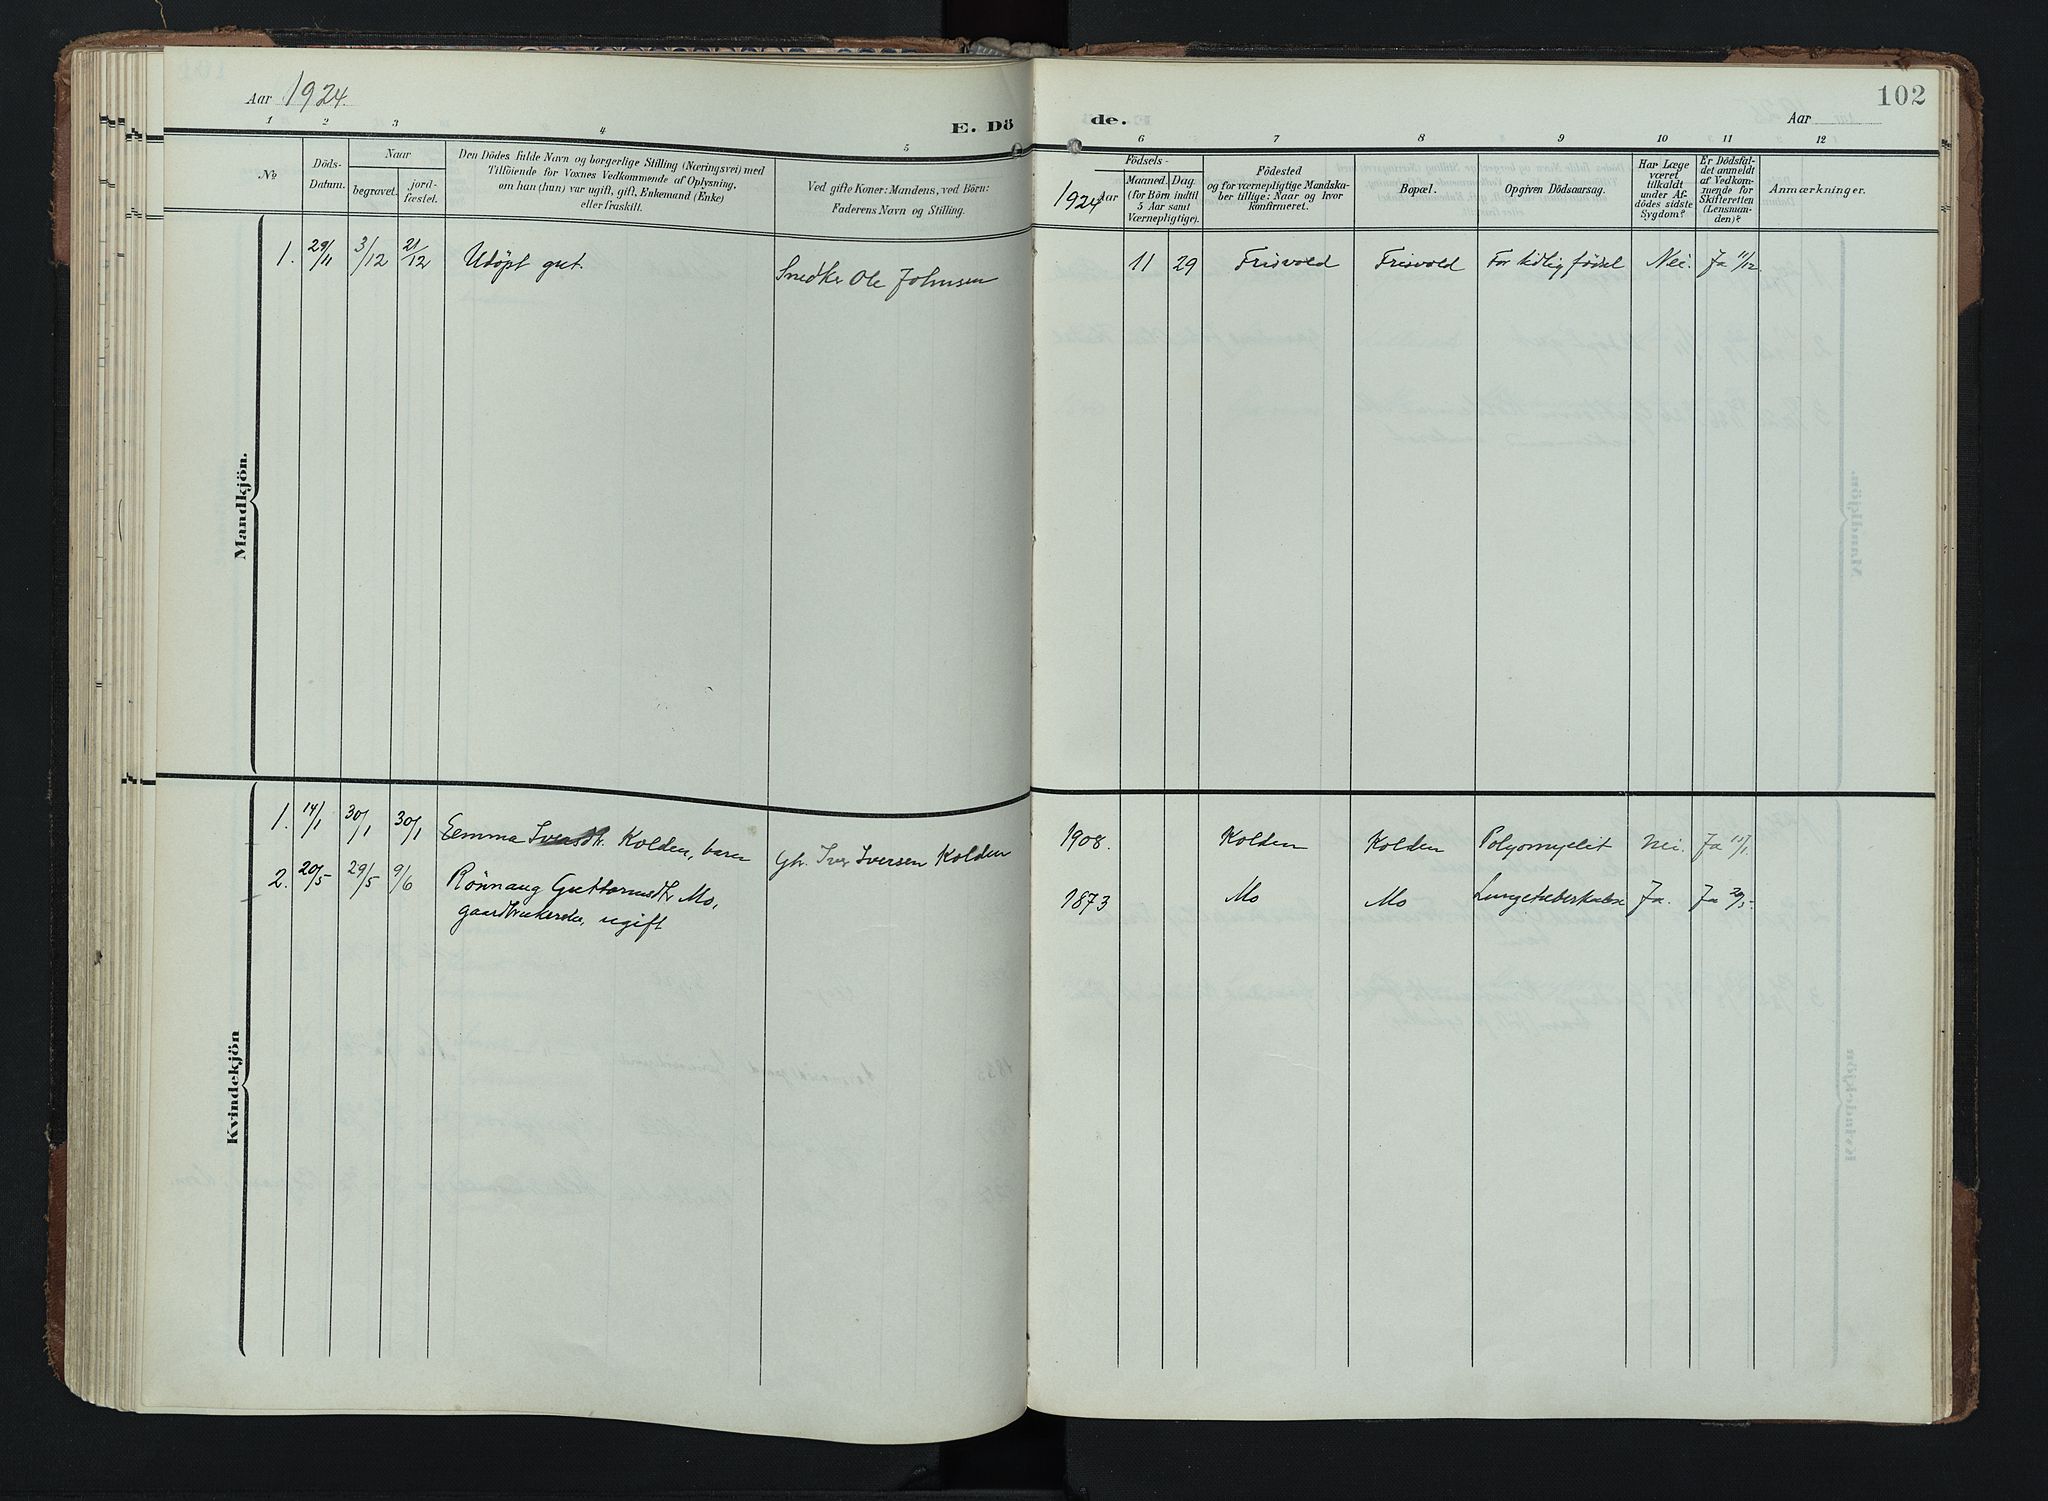 Aar 1924.
102
Aar
E. Dö
de.
1 2 3 4 5
6 7 8 9 10 11 12
No
Döds-
Datum.
Naar
begravet.
jord-
fæstet.
Den Dödes fulde Navn og borgerlige Stilling (Næringsvei) med
Tilföiende for Voxnes Vedkommende af Oplysning,
om han (hun) var ugift, gift, Enkemand (Enke)
eller fraskilt.
Ved gifte Koner: Mandens, ved Börn:
Faderens Navn og Stilling.
Födsels-
1924 Aar
Maaned. Dag.
(for Börn indtil
5 Aar samt
Værnepligtige).
Födested
og for værnepligtige Mandska-
ber tillige: Naar og hvor
konfirmeret.
Bopæl.
Opgiven Dödsaarsag.
Har Læge
været
tilkaldt
under Af-
dödes sidste
Sygdom?
Er Dödsfal-
det anmeldt
af Vedkom-
mende for
Skifteretten
(Lensman-
den)?
Anmærkninger.
Mandkjön.
1. 29/11 3/12 21/12 Udöpt gut. Snedker Ole Johnsen 11 29 Frisvold Frisvold For tidlig födsel Nei. Ja 11/12
Kvindekjön
1. 14/1 30/1 30/1 Emma Iversdtr. Kolden, barn Gb. Iver Iversen Kolden 1908. Kolden Kolden Polyomyelit Nei. Ja 15/1.
2. 20/5 29/5 9/6 Rönnaug Guttormsdtr Mo, 1873 Mo Mo Lungetuberkulose Ja. Ja 20/5-
gaardbrukerske, ugift